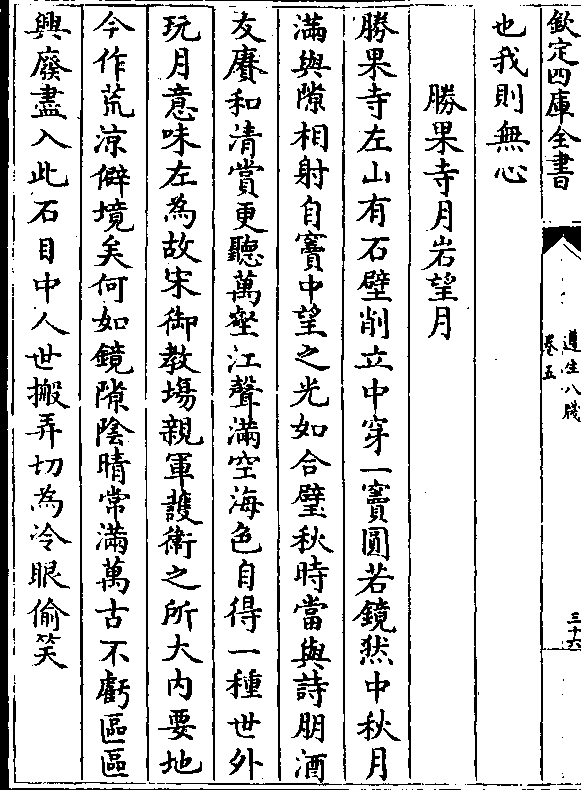 欽定四庫全書
遵生八牋
卷五
三十六
也我則無心
勝果寺月岩望月
勝果寺左山有石壁削立中穿一竇圓若鏡然中秋月
滿與隙相射自竇中望之光如合璧秋時當與詩朋酒
友賡和清賞更聽萬壑江聲滿空海色自得一種世外
玩月意味左為故宋御教塲親軍護衛之所大内要地
今作荒涼僻境矣何如鏡隙陰晴常滿萬古不虧區區
興廢盡入此石目中人世搬弄切為冷眼偷笑